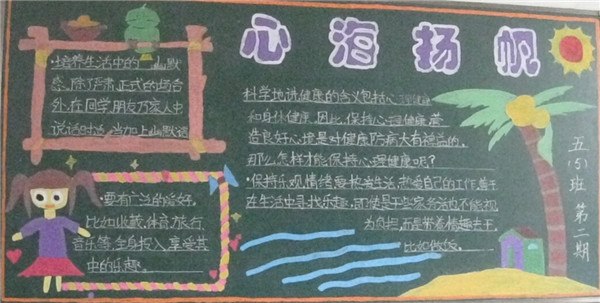 心海扬帆
·培养生活中的幽默
感，除了严肃正式的场合
外，在同学朋友乃家人中
说话时适当加上幽默话
·要有广泛的爱好，
比如收藏、体育、旅行、
音乐等，全身投入，享受其
中的乐趣。
科学地讲健康的含义包括心理健康
和身体健康。因此，保持心理健康，营
造良好心境是对健康防病大有裨益的。
那么，怎样才能保持心理健康呢？
·保持乐观情绪要热爱生活，热爱自己的工作，善于
在生活中寻找乐趣，即使是干些家务活也不能视
为负担，而是带着情趣去干，
比如做饭，
五(5)班 第二期